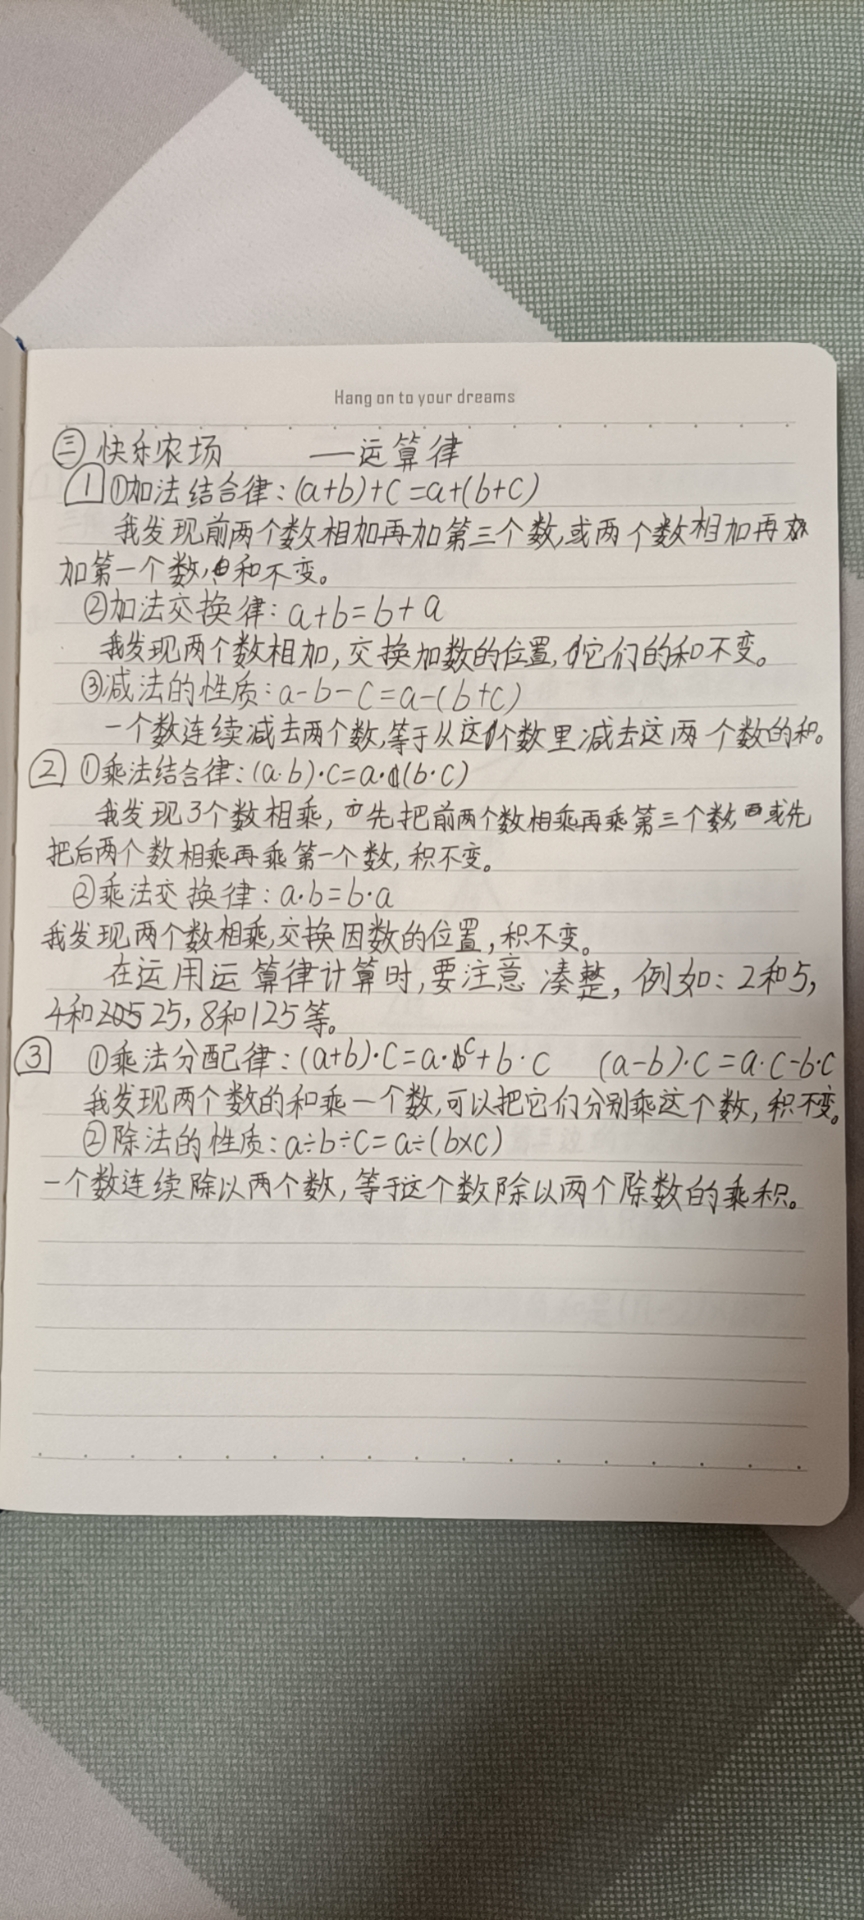 Hang on to your dreams
㊂ 快乐农场 —运算律
1 ①加法结合律:(a+b)+c=a+(b+c)
我发现前两个数相加再加第三个数,或两个数相加再
加第一个数,和不变。
②加法交换律:a+b=b+a
我发现两个数相加,交换加数的位置,它们的和不变。
③减法的性质:a-b-c=a-(b+c)
一个数连续减去两个数,等于从这个数里减去这两个数的和。
2 ①乘法结合律:(a·b)·c=a·(b·c)
我发现3个数相乘,先把前两个数相乘再乘第三个数,或先
把后两个数相乘再乘第一个数,积不变。
②乘法交换律:a·b=b·a
我发现两个数相乘,交换因数的位置,积不变。
在运用运算律计算时,要注意凑整,例如:2和5,
4和25,8和125等。
3 ①乘法分配律:(a+b)·c=a·c+b·c (a-b)·c=a·c-b·c
我发现两个数的和乘一个数,可以把它们分别乘这个数,积不变。
②除法的性质:a÷b÷c=a÷(b×c)
一个数连续除以两个数,等于这个数除以两个除数的乘积。